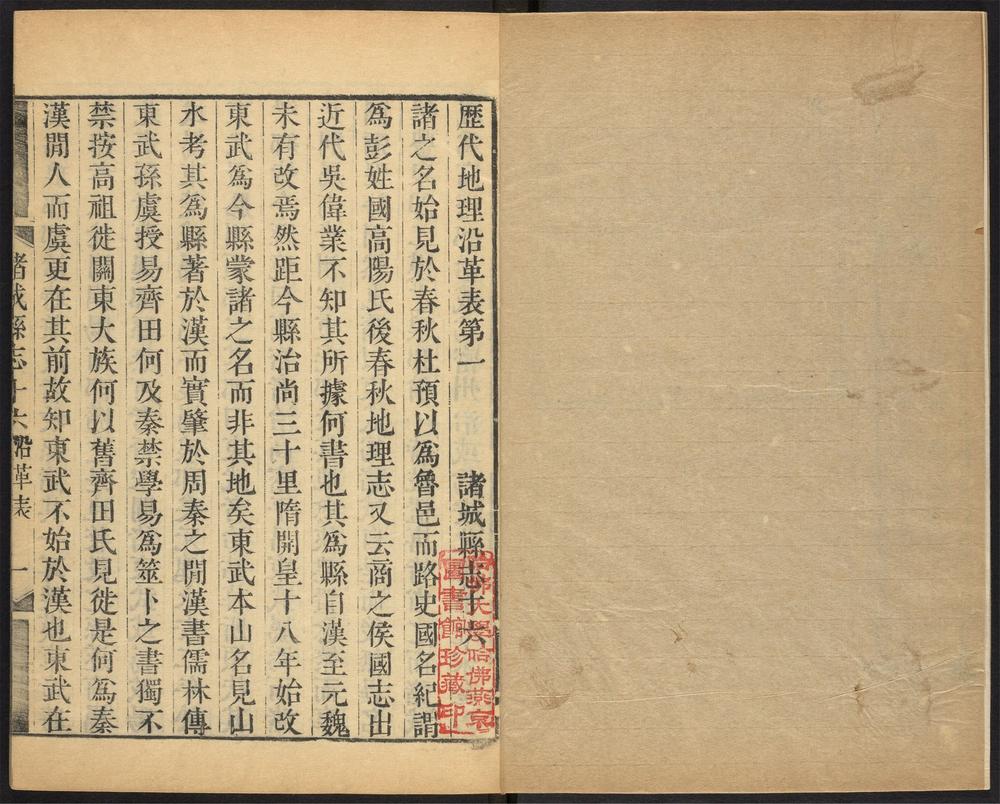 歴代地理沿革表第一　　　諸城縣志十六
諸之名始見於春秋杜預以爲魯邑而路史國名紀謂
爲彭姓國高陽氏後春秋地理志又云商之侯國志出
近代吳偉業不知其所據何書也其爲縣自漢至元魏
未有改焉然距今縣治尚三十里隋開皇十八年始改
東武爲今縣蒙諸之名而非其地矣東武本山名見山
水考其爲縣著於漢而實肇於周秦之閒漢書儒林傳
東武孫虞授易齊田何及秦禁學易爲筮卜之書獨不
禁按高祖徙關東大族何以舊齊田氏見徙是何爲秦
漢閒人而虞更在其前故知東武不始於漢也東武在
諸城縣志十六　沿革表　一
哈佛大學哈佛燕京
圖書館珍藏印